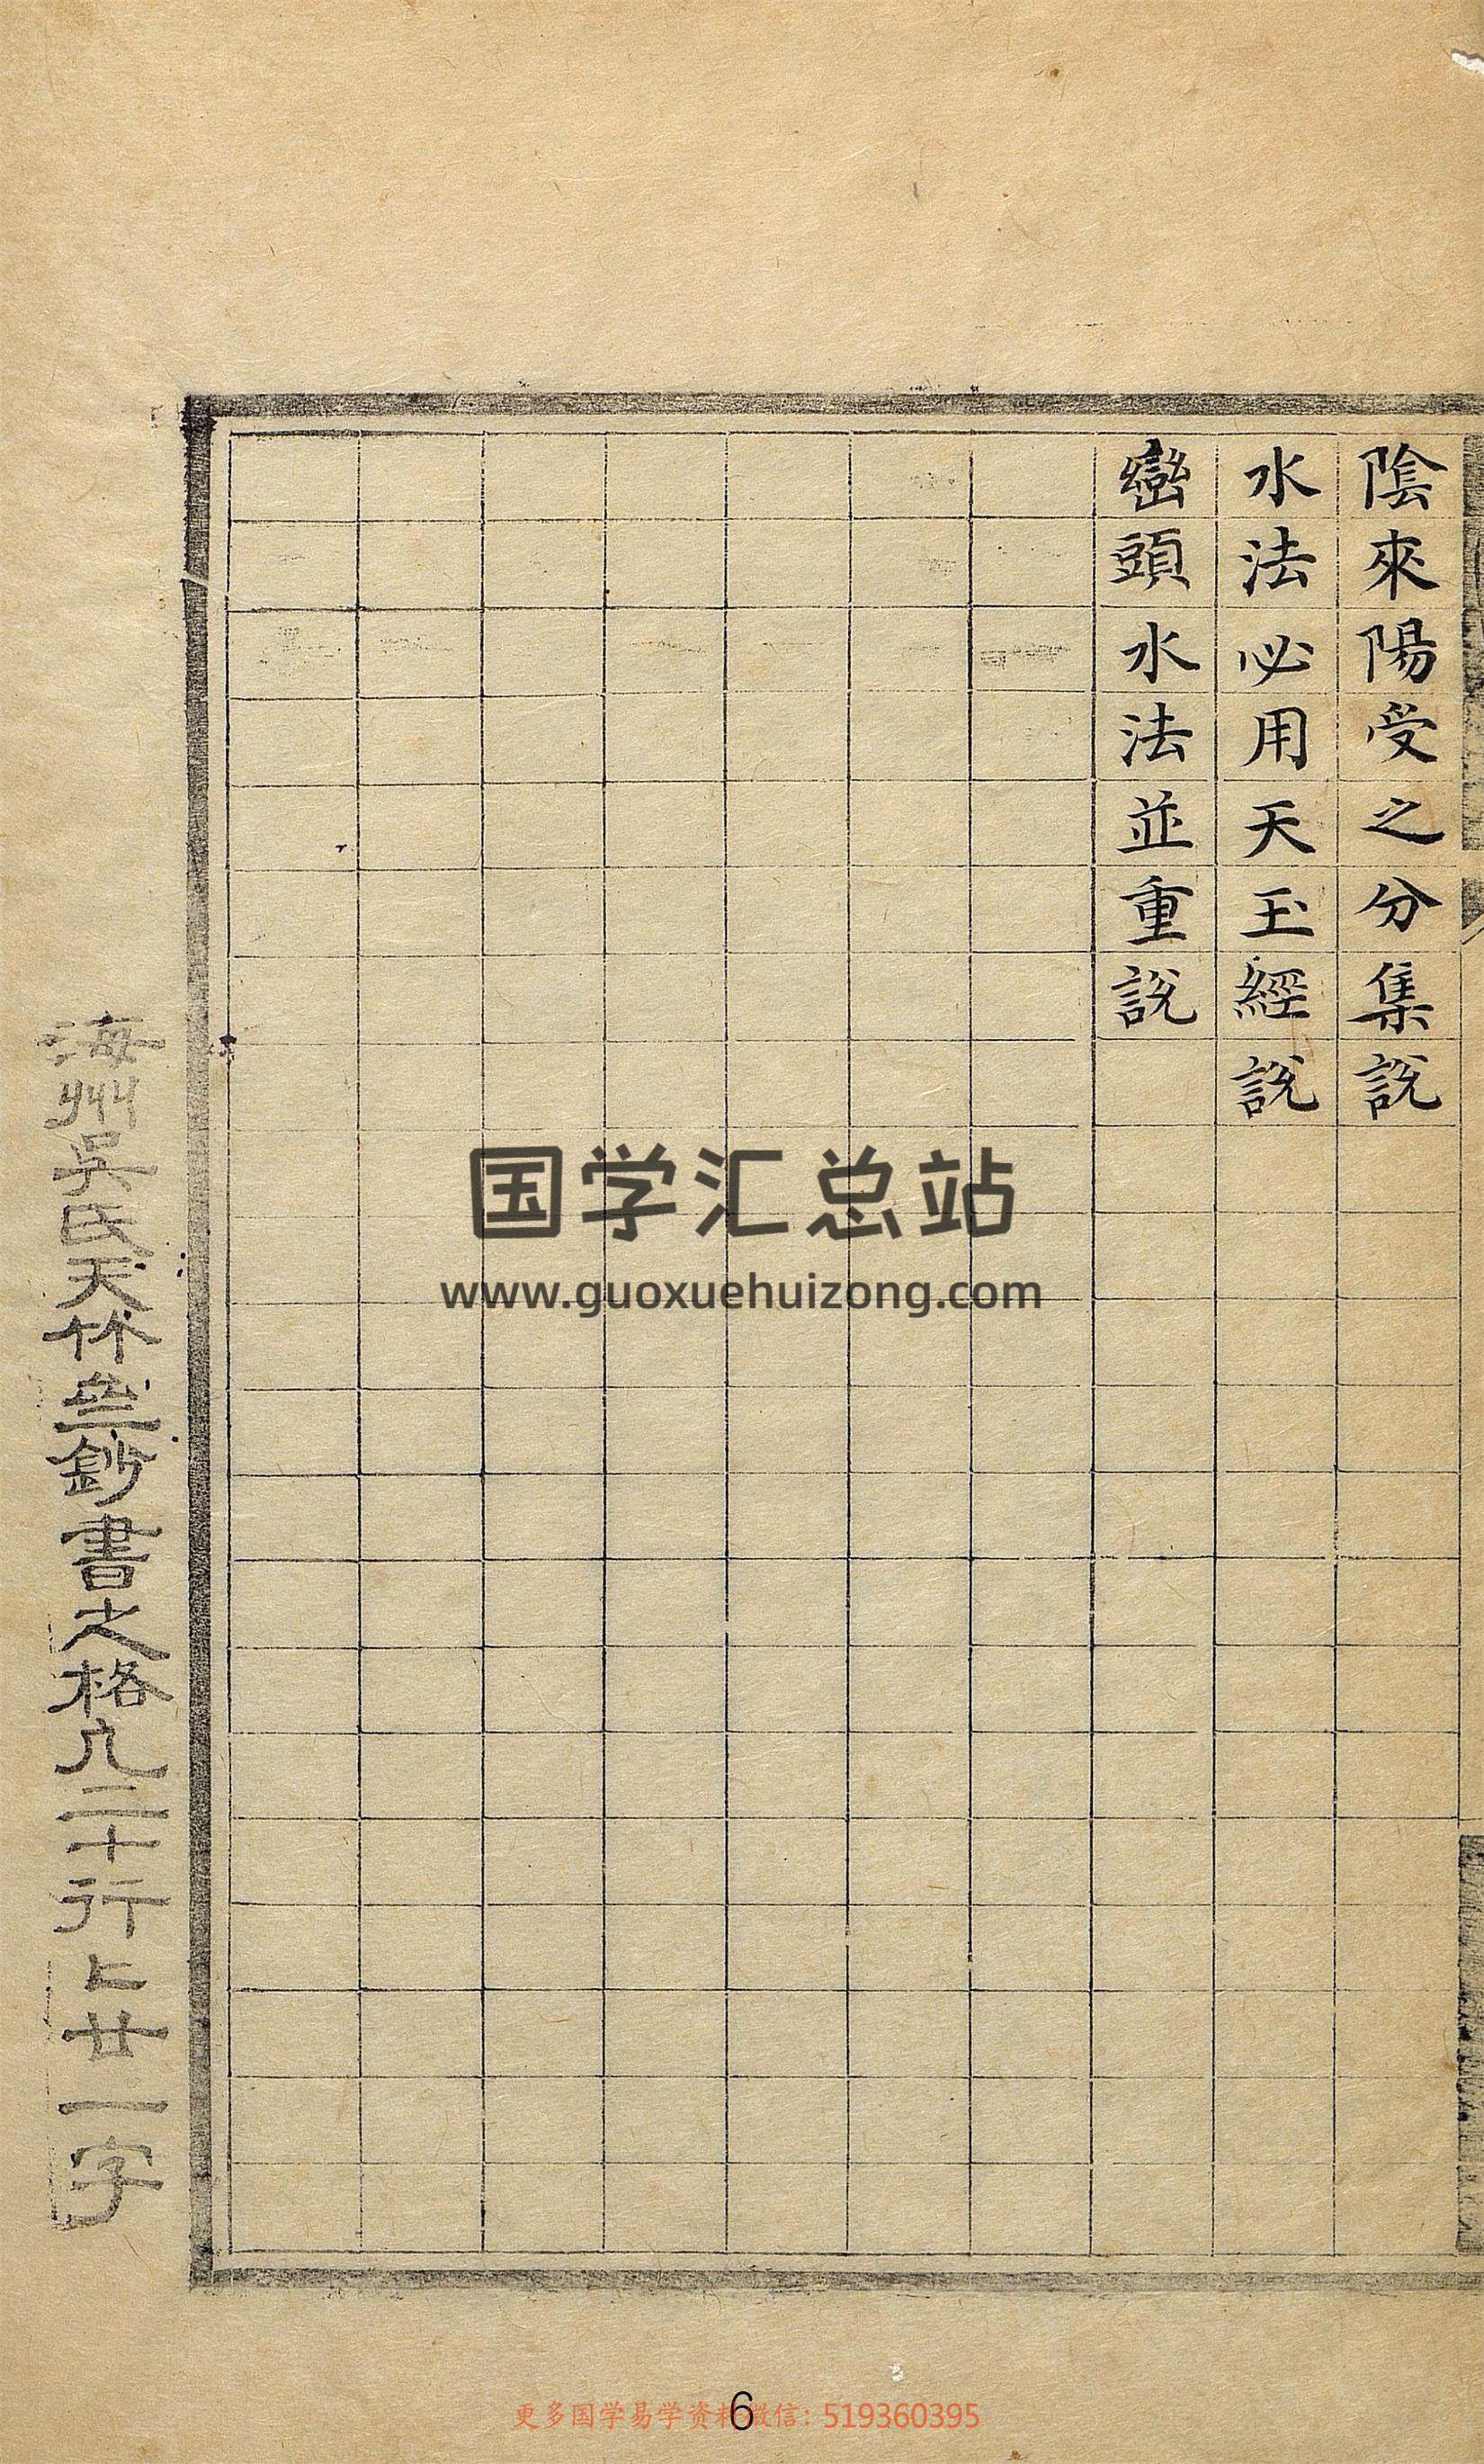 陰來陽受之分集説
水法必用天玉經説
巒頭水法並重説
海州吳氏天休
鈔書之格凡二十行上廿一字
国学汇总站
www.guoxuehuizong.com
更多国学易学资料微信：519360395
6